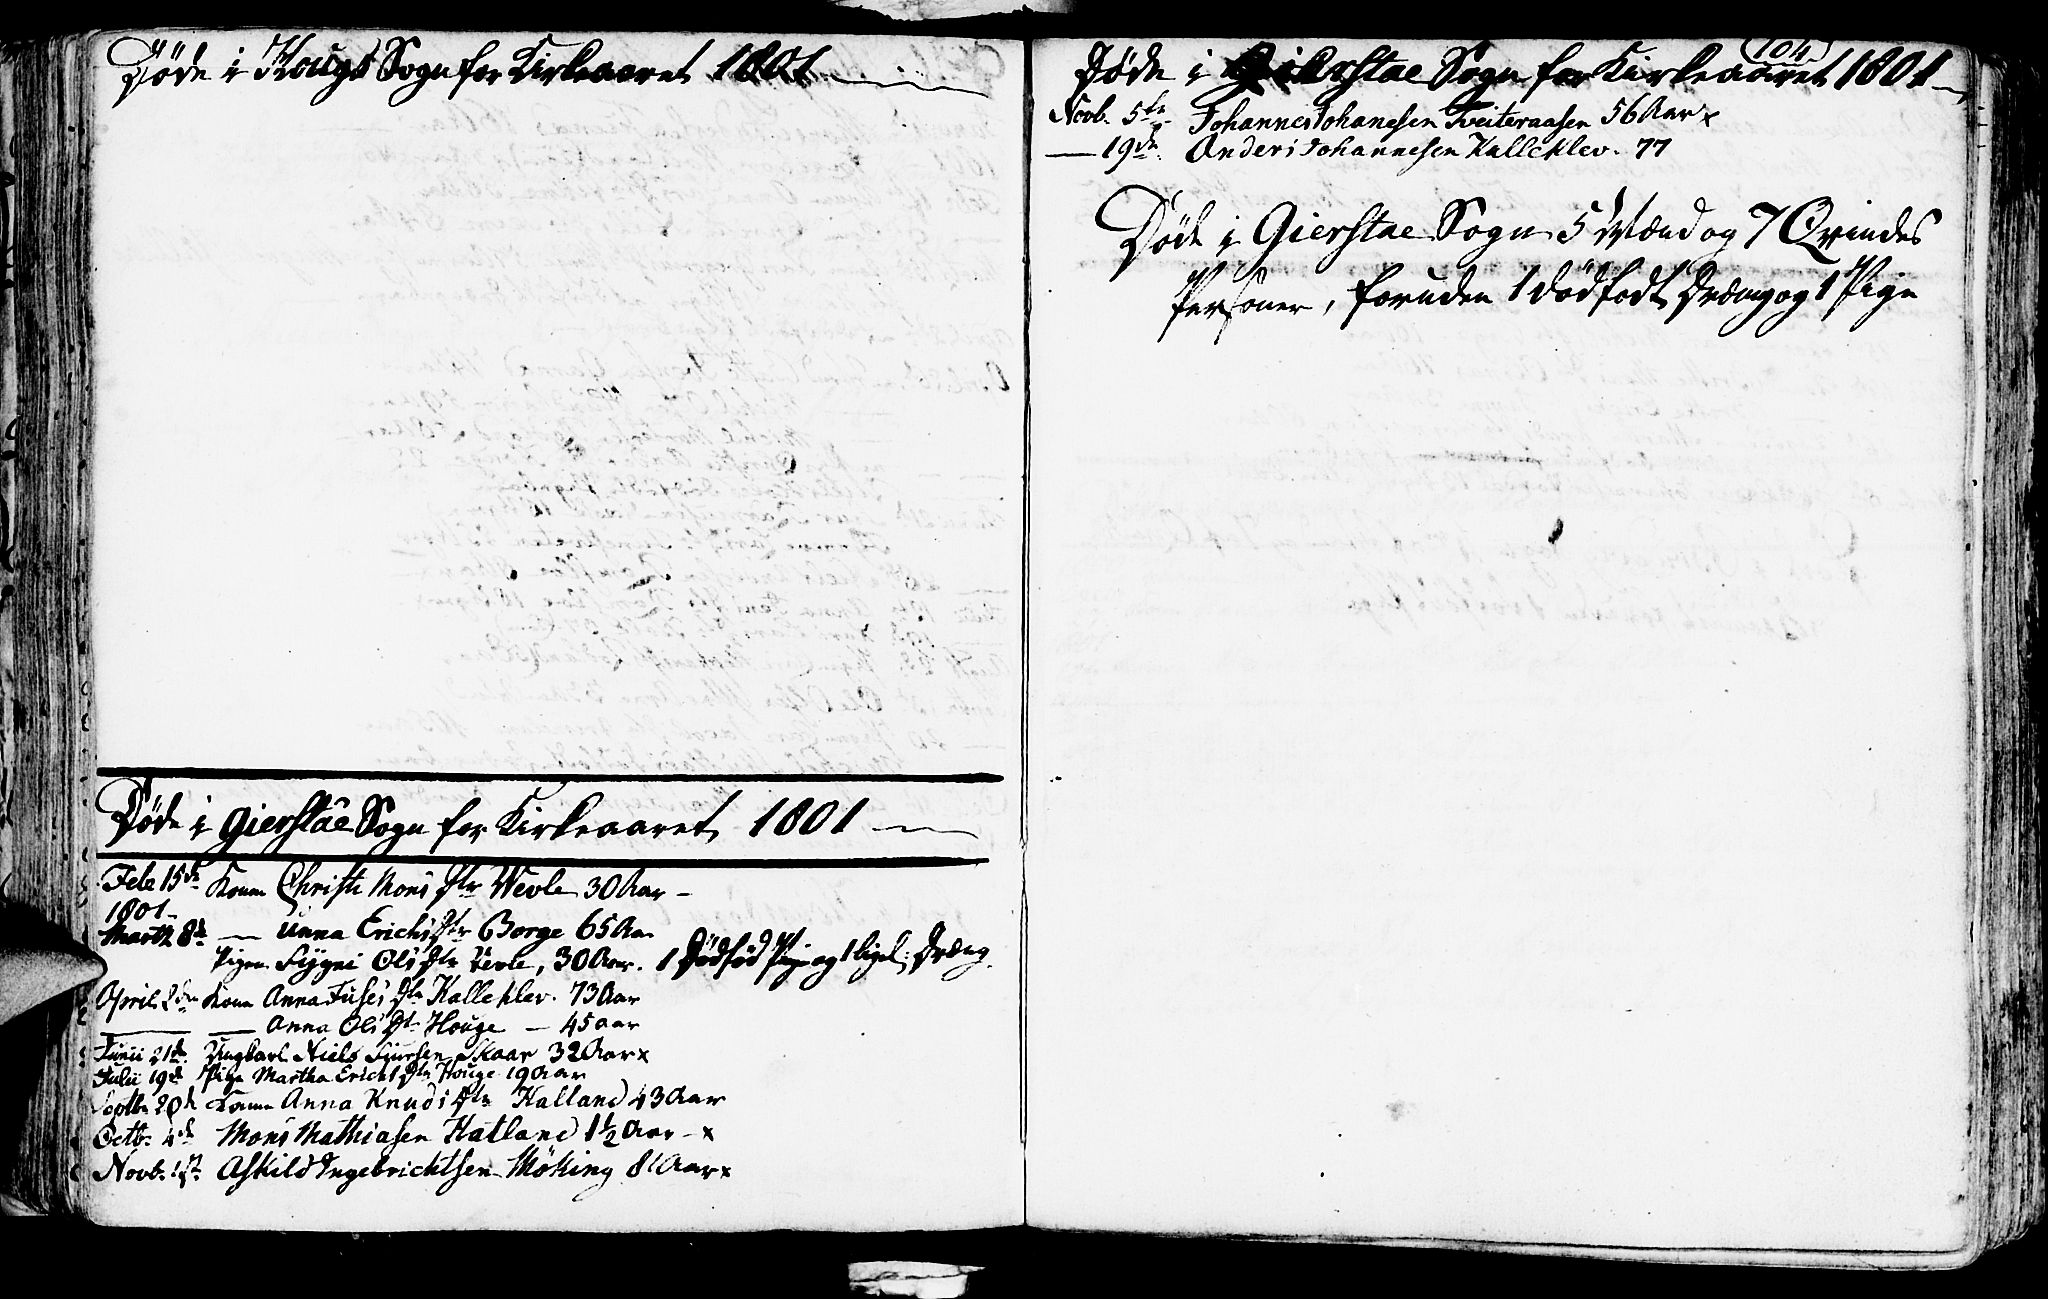 Døde i Hougs Sogn for Kirkeaaret 1801
Døde i Gierstae Sogn for Kirkeaaret 1801
Febr 15de Konen Christi Mons Dtr Wevle 30 Aar
1801
Martz 8de — Anna Erichs Dtr Borge 65 Aar
Pigen Sygni Ols Dtr Vevle, 30 Aar. 1 Dødfød Pige og 1 ligel: Dræng
April 2den Konen Anna Fuses Dtr Kalleklev. 73 Aar
— Anna Ols Dtr Houge — 45 aar
Junii 21de Ungkarl Niels Sjursen Skaar 32 Aar x
Julii 19de Pige Martha Erichs Dtr Houge 19 Aar
Septbr 20de Konen Anna Knuds Dtr Hatland 43 Aar
Octb: 4de Mons Mathiasen Hatland 1½ Aar x
Novb: 1st Askild Ingebrichtsen Møking 81 Aar x
104
Døde i Gierstae Sogn for Kirkeaaret 1801
Novb. 5te Johannes Johanesen Tveiteraasen 56 Aar x
— 19de Anders Johannesen Kalleklev. 77
Døde i Gierstae Sogn 5 Mænd og 7 Qvindes
Personer, foruden 1 dødfødt Dræng og 1 Pige